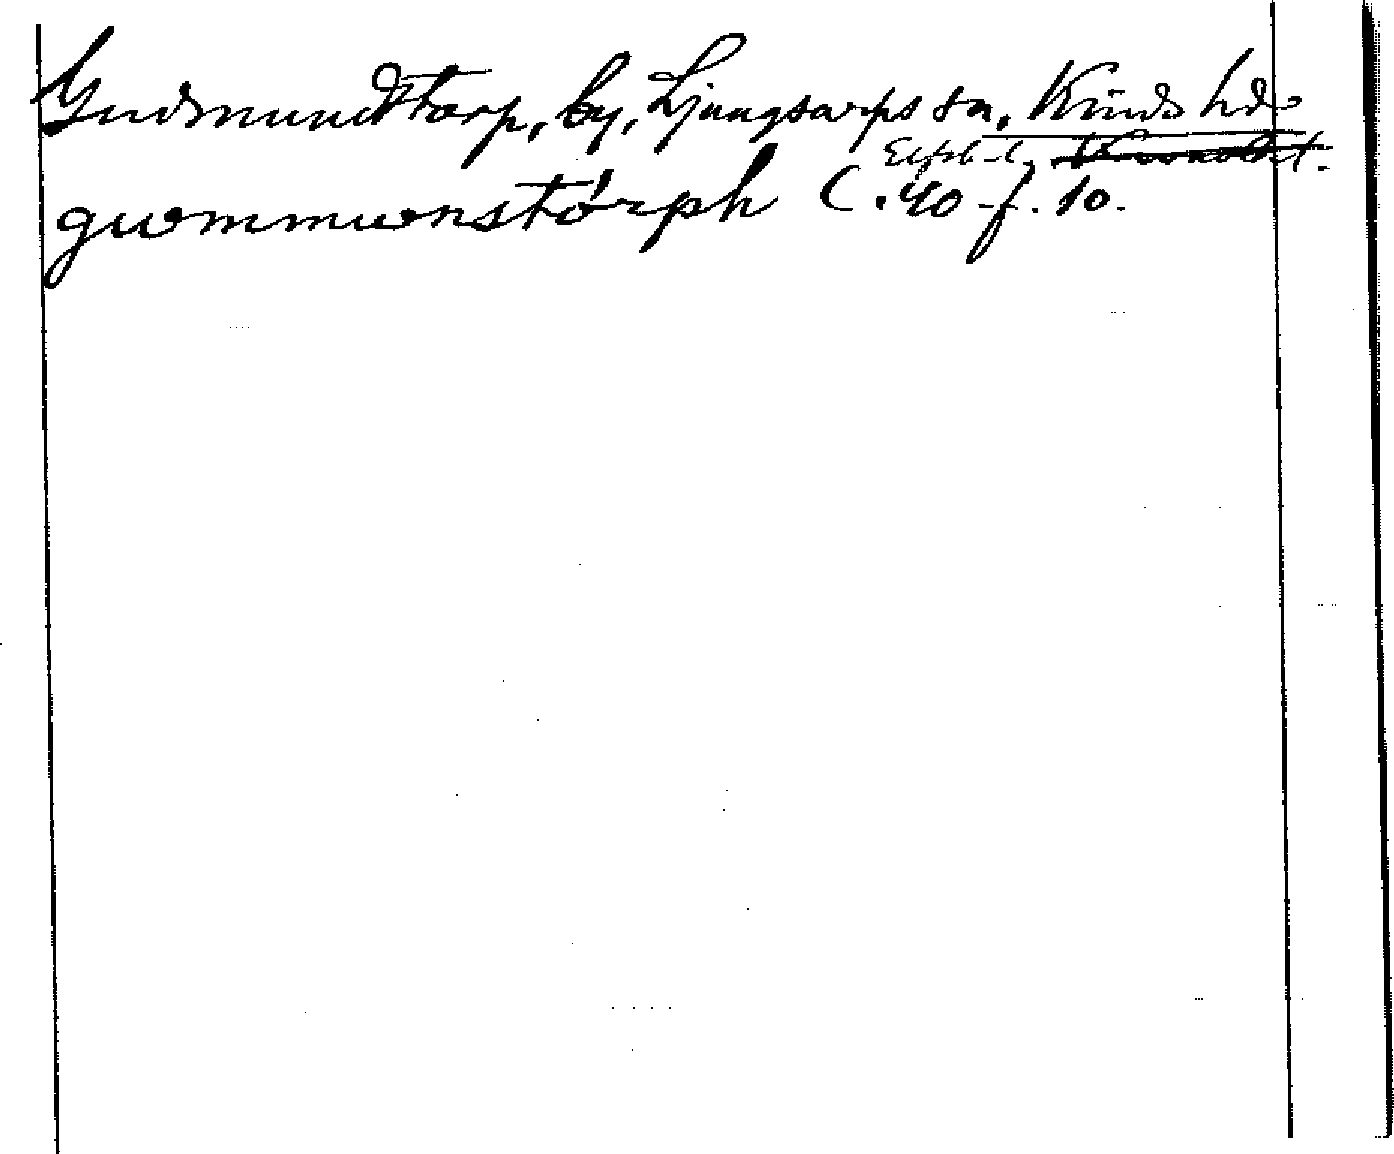 Gudmundtorp, by, Ljungsarps sn, Kinds hd
Elfsb. l.
gudmmunstórph C. 40 f. 10.